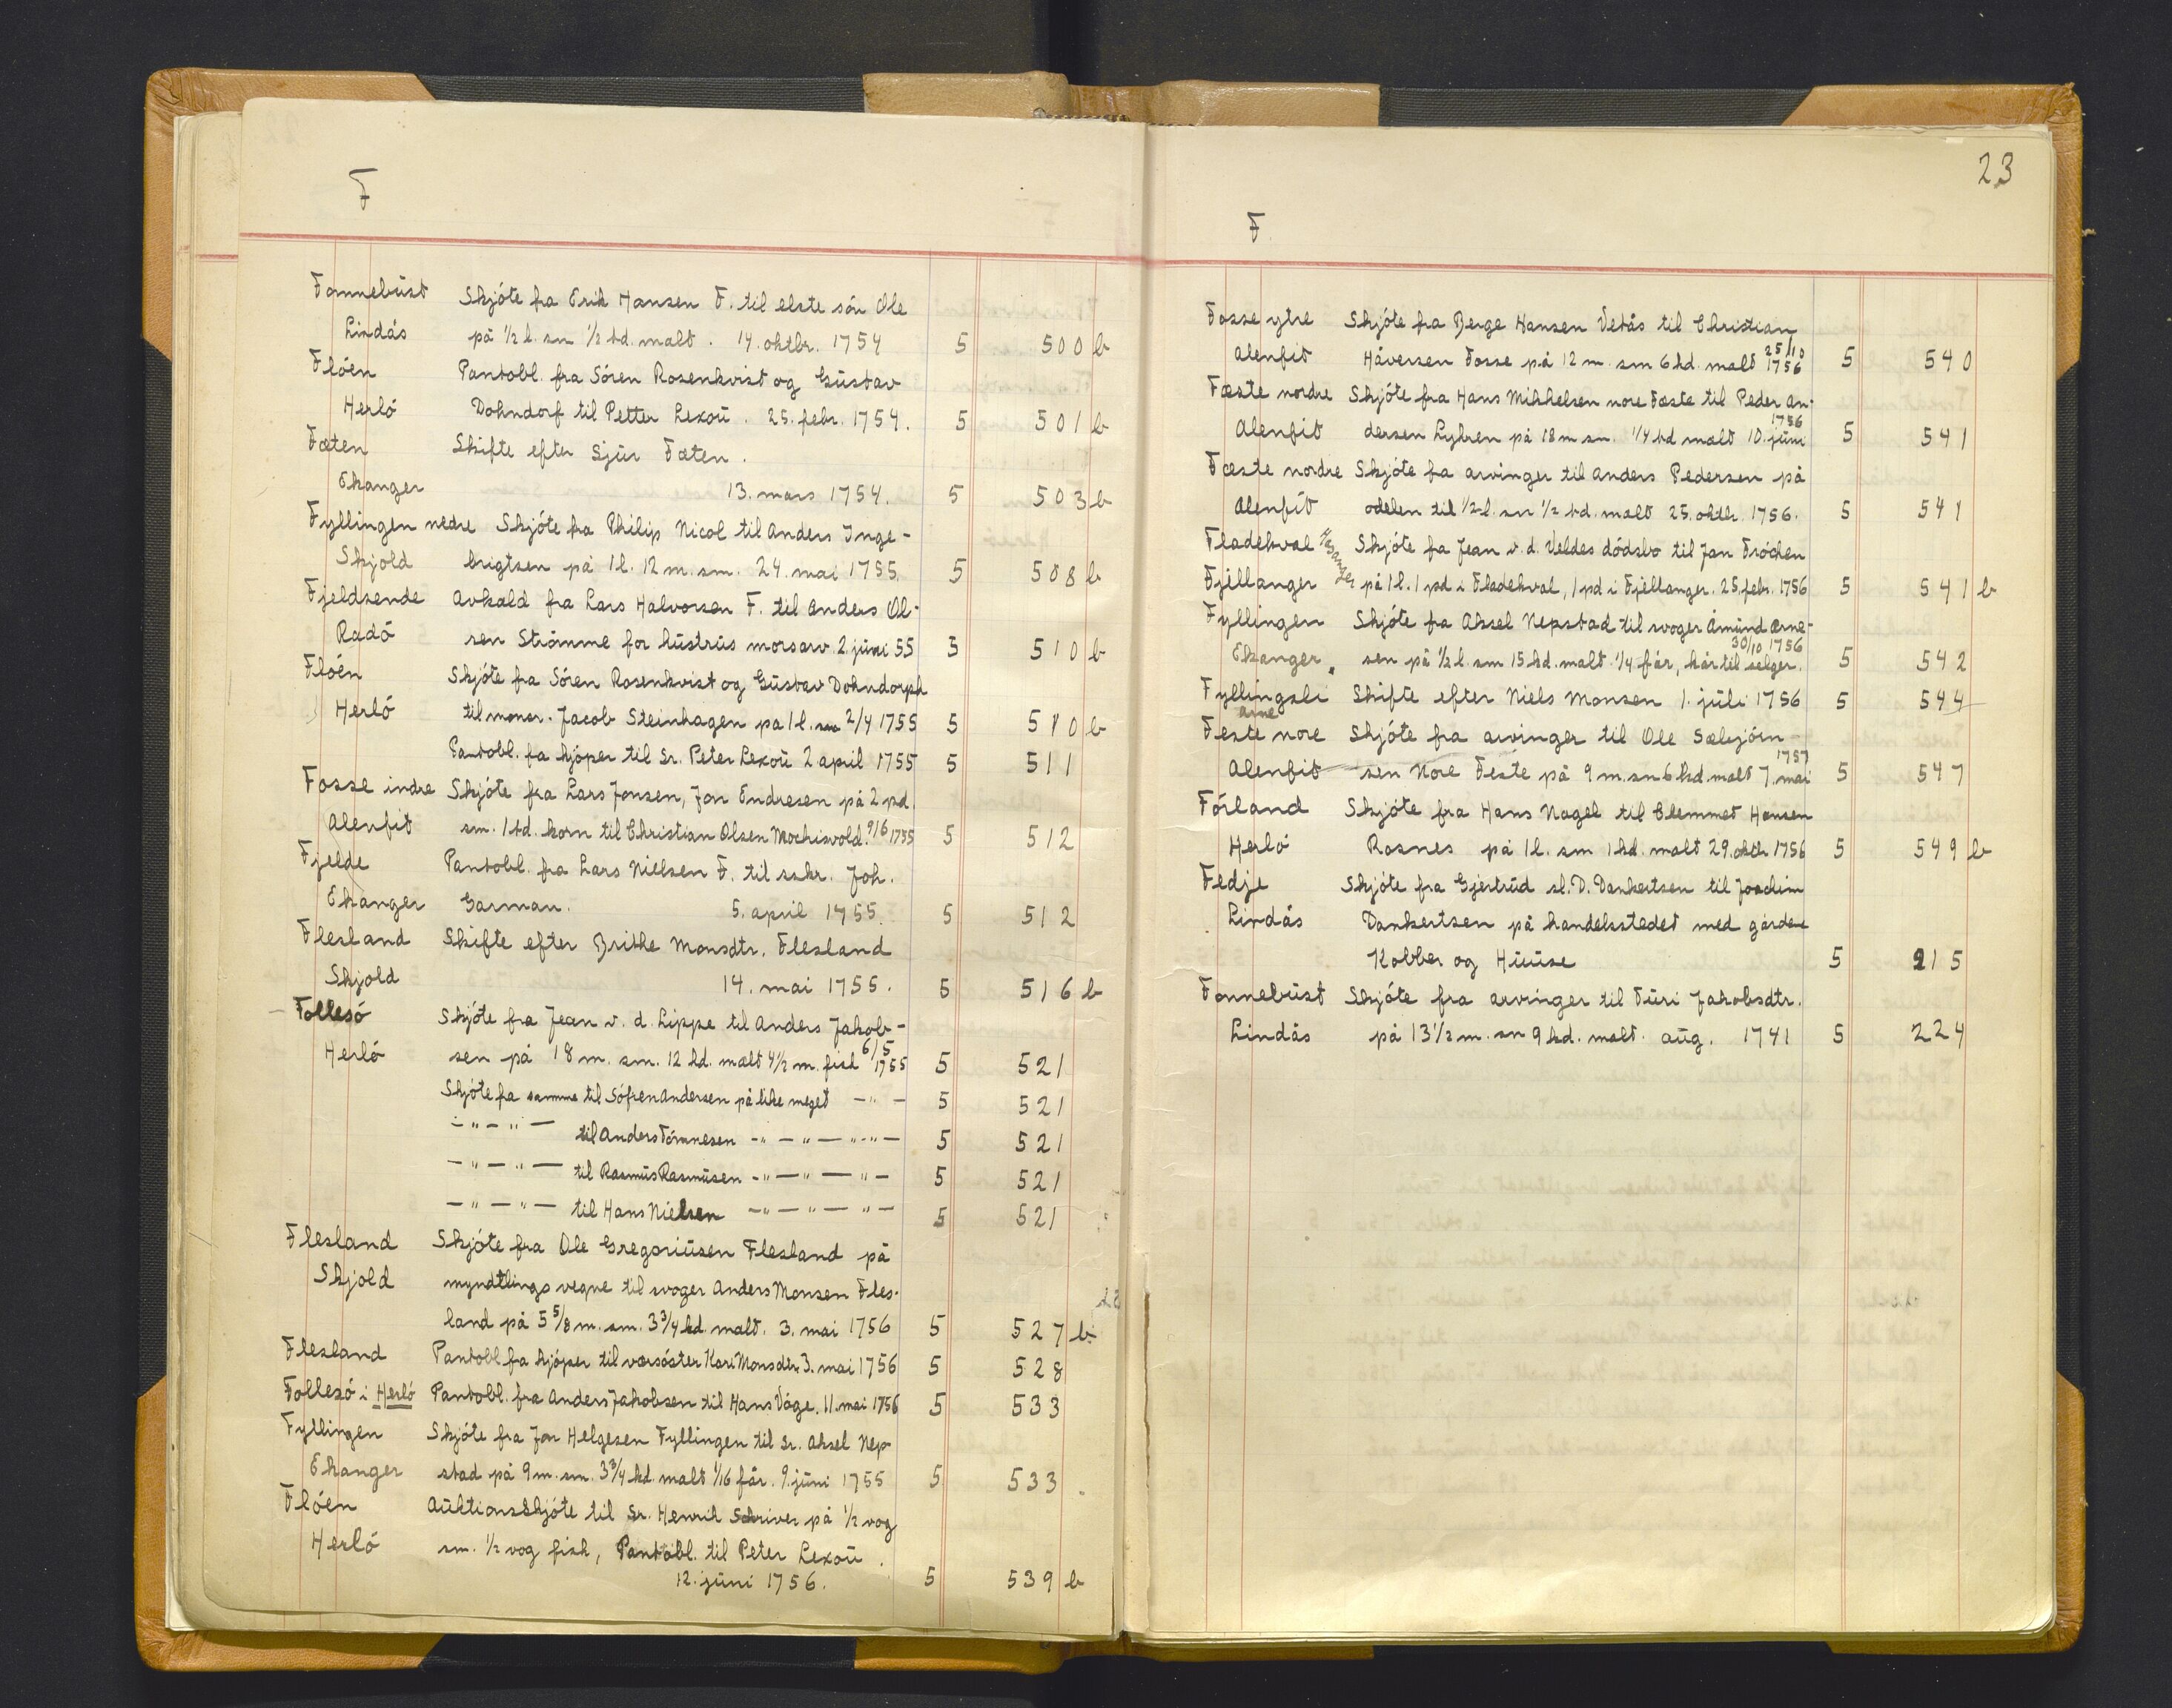 F
Fonnebust Skjóte fra Erik Hansen F. til elste són Ole
Lindås på ½ l. sm ½ td. malt. 14. oktbr. 1754 5 500 b
Flóen Pantobl. fra Sóren Rosenkvist og Gustav
Herló Dohndorf til Petter Lexou. 25. febr. 1754. 5 501 b
Fæten Skifte efter Sjur Fæten.
Ekanger 13. mars 1754. 5 503 b
Fyllingen nedre Skjóte fra Philip Nicol til Anders Inge-
Skjold brigtsen på 1 l. 12 m. sm. 24. mai 1755. 5 508 b
Fjeldsende Avkald fra Lars Halvorsen F. til Anders Ol-
Radó sen Strómme for hustrus morsarv. 2. juni 55 5 510 b
Flóen Skjóte fra Sóren Rosenkvist og Gustav Dohndorph
Herló til monsr. Jacob Steinhagen på 1 l. sm 2/4 1755 5 510 b
Pantobl. fra kjóper til Sr. Peter Lexou 2 april 1755 5 511
Fosse indre Skjóte fra Lars Jonsen, Jon Endresen på 2 pd.
Alenfit sm. 1 td. korn til Christian Olsen Mochisvold. 9/6 1755 5 512
Fjelde Pantobl. fra Lars Nielsen F. til sskr. Joh.
Ekanger Garman. 5. april 1755. 5 512
Flesland Skifte efter Brithe Monsdtr. Flesland
Skjold 14. mai 1755. 5 516 b
Follesó Skjóte fra Jean v. d. Lippe til Anders Jakob-
Herló sen på 18 m. sm. 12 kd. malt 4½ m. fisk 6/5 1755 5 521
Skjóte fra samme til Sófren Andersen på like meget -"- 5 521
-"-"- til Anders Tómmesen -"-"-"-"- 5 521
-"-"- til Rasmus Rasmusen -"-"-"- 5 521
-"-"- til Hans Nielsen -"-"-"- 5 521
Flesland Skjóte fra Ole Gregoriusen Flesland på
Skjold myndtlings vegne til svoger Anders Monsen Fles-
land på 5 5/8 m. sm. 3¾ kd. malt. 3. mai 1756 5 527 b
Flesland Pantobl fra kjóper til værsóster Kari Monsdtr 3. mai 1756 5 528
Follesó i Herló Pantobl. fra Anders Jakobsen til Hans Våge. 11. mai 1756 5 533
Fyllingen Skjóte fra Jon Helgesen Fyllingen til Sr. Aksel Nep-
Ekanger stad på 9 m. sm. 3¾ kd malt 1/16 får. 9. juni 1755 5 533
Flóen Auktionsskjóte til Sr. Henrik Schriver på ½ vog
Herló sm. ½ vog fisk, Pantobl. til Peter Lexou.
12. juni 1756. 5 539 b
23
F
Fosse ytre Skjóte fra Berge Hansen Vetås til Christian
Alenfit Håversen Fosse på 12 m. sm 6 kd. malt 25/10 1756 5 540
Fæste nordre Skjóte fra Hans Mikkelsen nore Fæste til Peder An-
Alenfit dersen Lykren på 18 m sm. ¼ td malt 10. juni 1756 5 541
Fæste nordre Skjóte fra arvinger til Anders Pedersen på
Alenfit odelen til ½ l. sm ½ td. malt 25. oktbr. 1756. 5 541
Fladekval Skjóte fra Jean v. d. Veldes dódsbo til Jan Fróchen
Fjellanger på 1 l. 1 pd i Fladekval, 1 pd i Fjellanger. 25. febr. 1756 5 541 b
Fyllingen Skjóte fra Aksel Nepstad til svoger Åmund Arne-
Ekanger sen på ½ l. sm 15 kd. malt ¼ får, kår til selger. 30/10 1756 5 542
Fyllingsli Skifte efter Niels Monsen 1. juli 1756 5 544
Arne
Feste nore Skjóte fra arvinger til Ole Sæbjórn
Alenfit sen Nore Feste på 9 m. sm 6 kd malt 7. mai 1757 5 547
Fórland Skjóte fra Hans Nagel til Clemmet Hansen
Herló Rosnes på 1 l. sm 1 kd. malt 29. oktbr 1756 5 549 b
Fedje Skjóte fra Gjertrud sl. D. Dankertsen til Joachim
Lindås Dankertsen på handelsstedet med gårdene
Kobber og Huuse 5 215
Fonnebust Skjóte fra arvinger til Turi Jakobsdtr.
Lindås på 13½ m. sm 9 kd. malt. aug. 1741 5 224